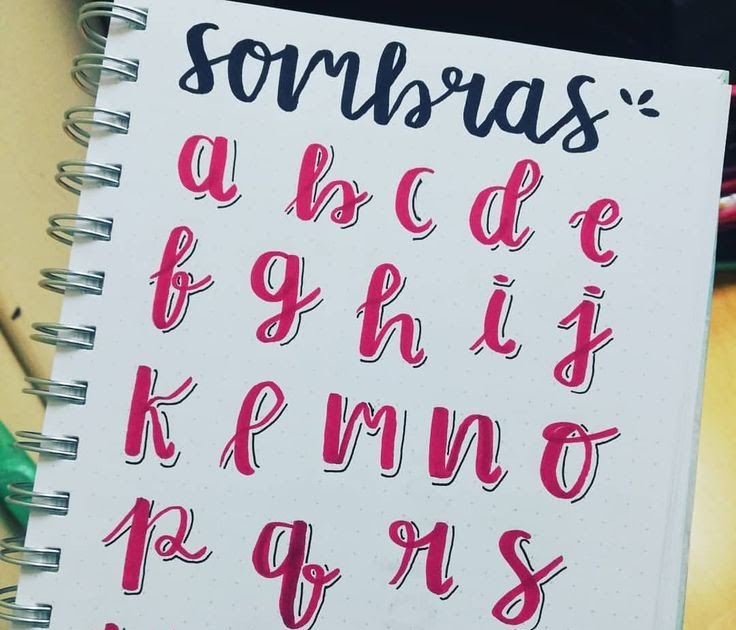 sombras
a b c d e
f g h i j
k l m n o
p q r s